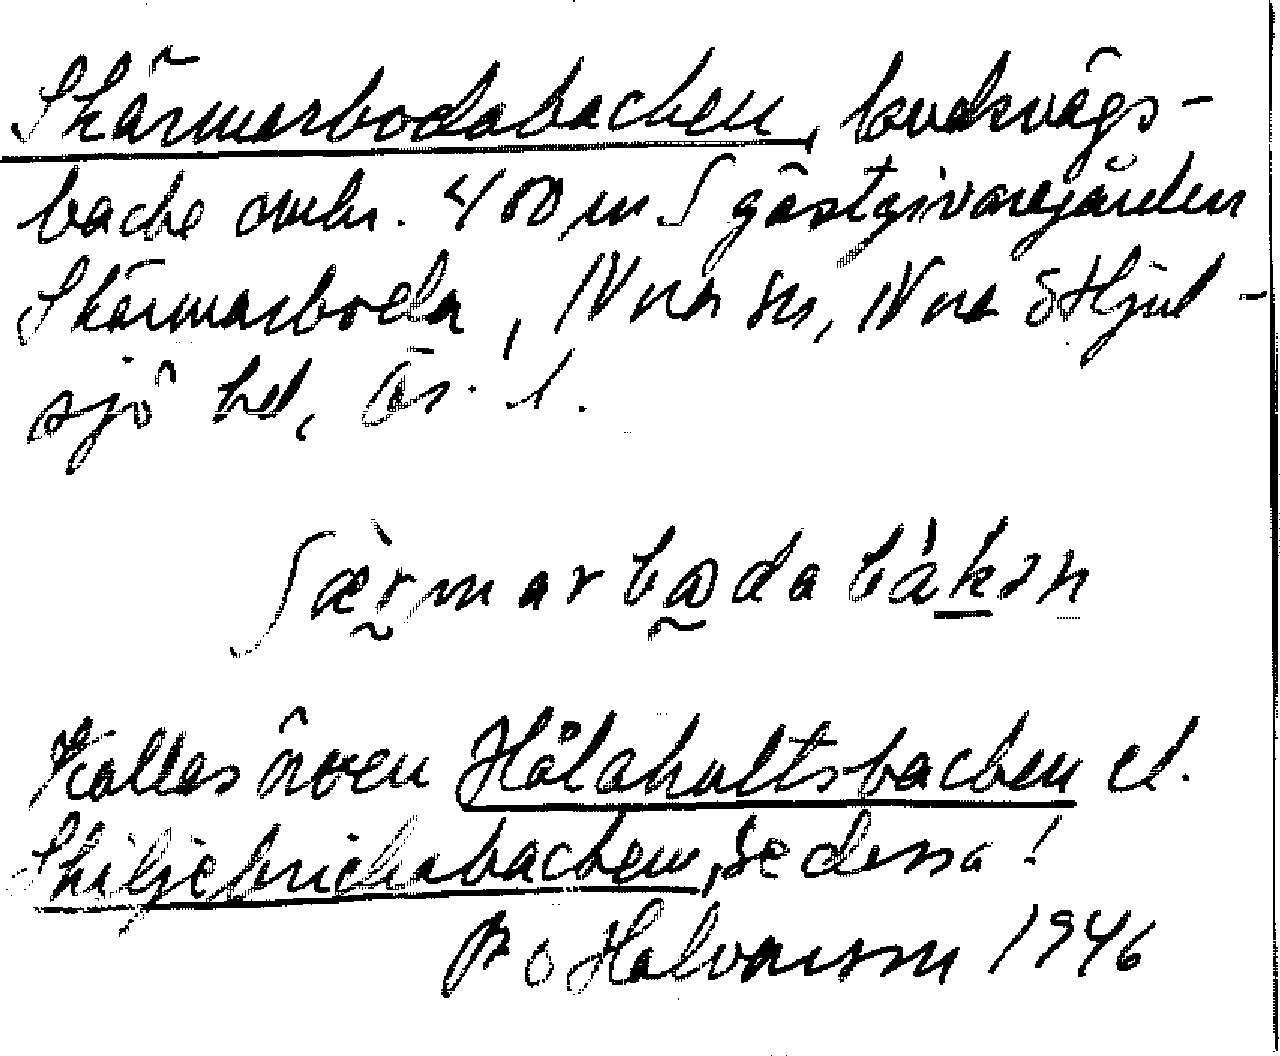 Skärmarbodabacken, landsvägs-
backe omkr. 400 m S gästgivaregården
Skärmarboda, Nora sn, Nora o Hjul-
sjö hd, Ör. l.
ʃæ̀rmarbωdabákən
Kallas även Hålahultsbacken el.
Skiljebricksbacken, se dessa!
P O Halvarsson 1946